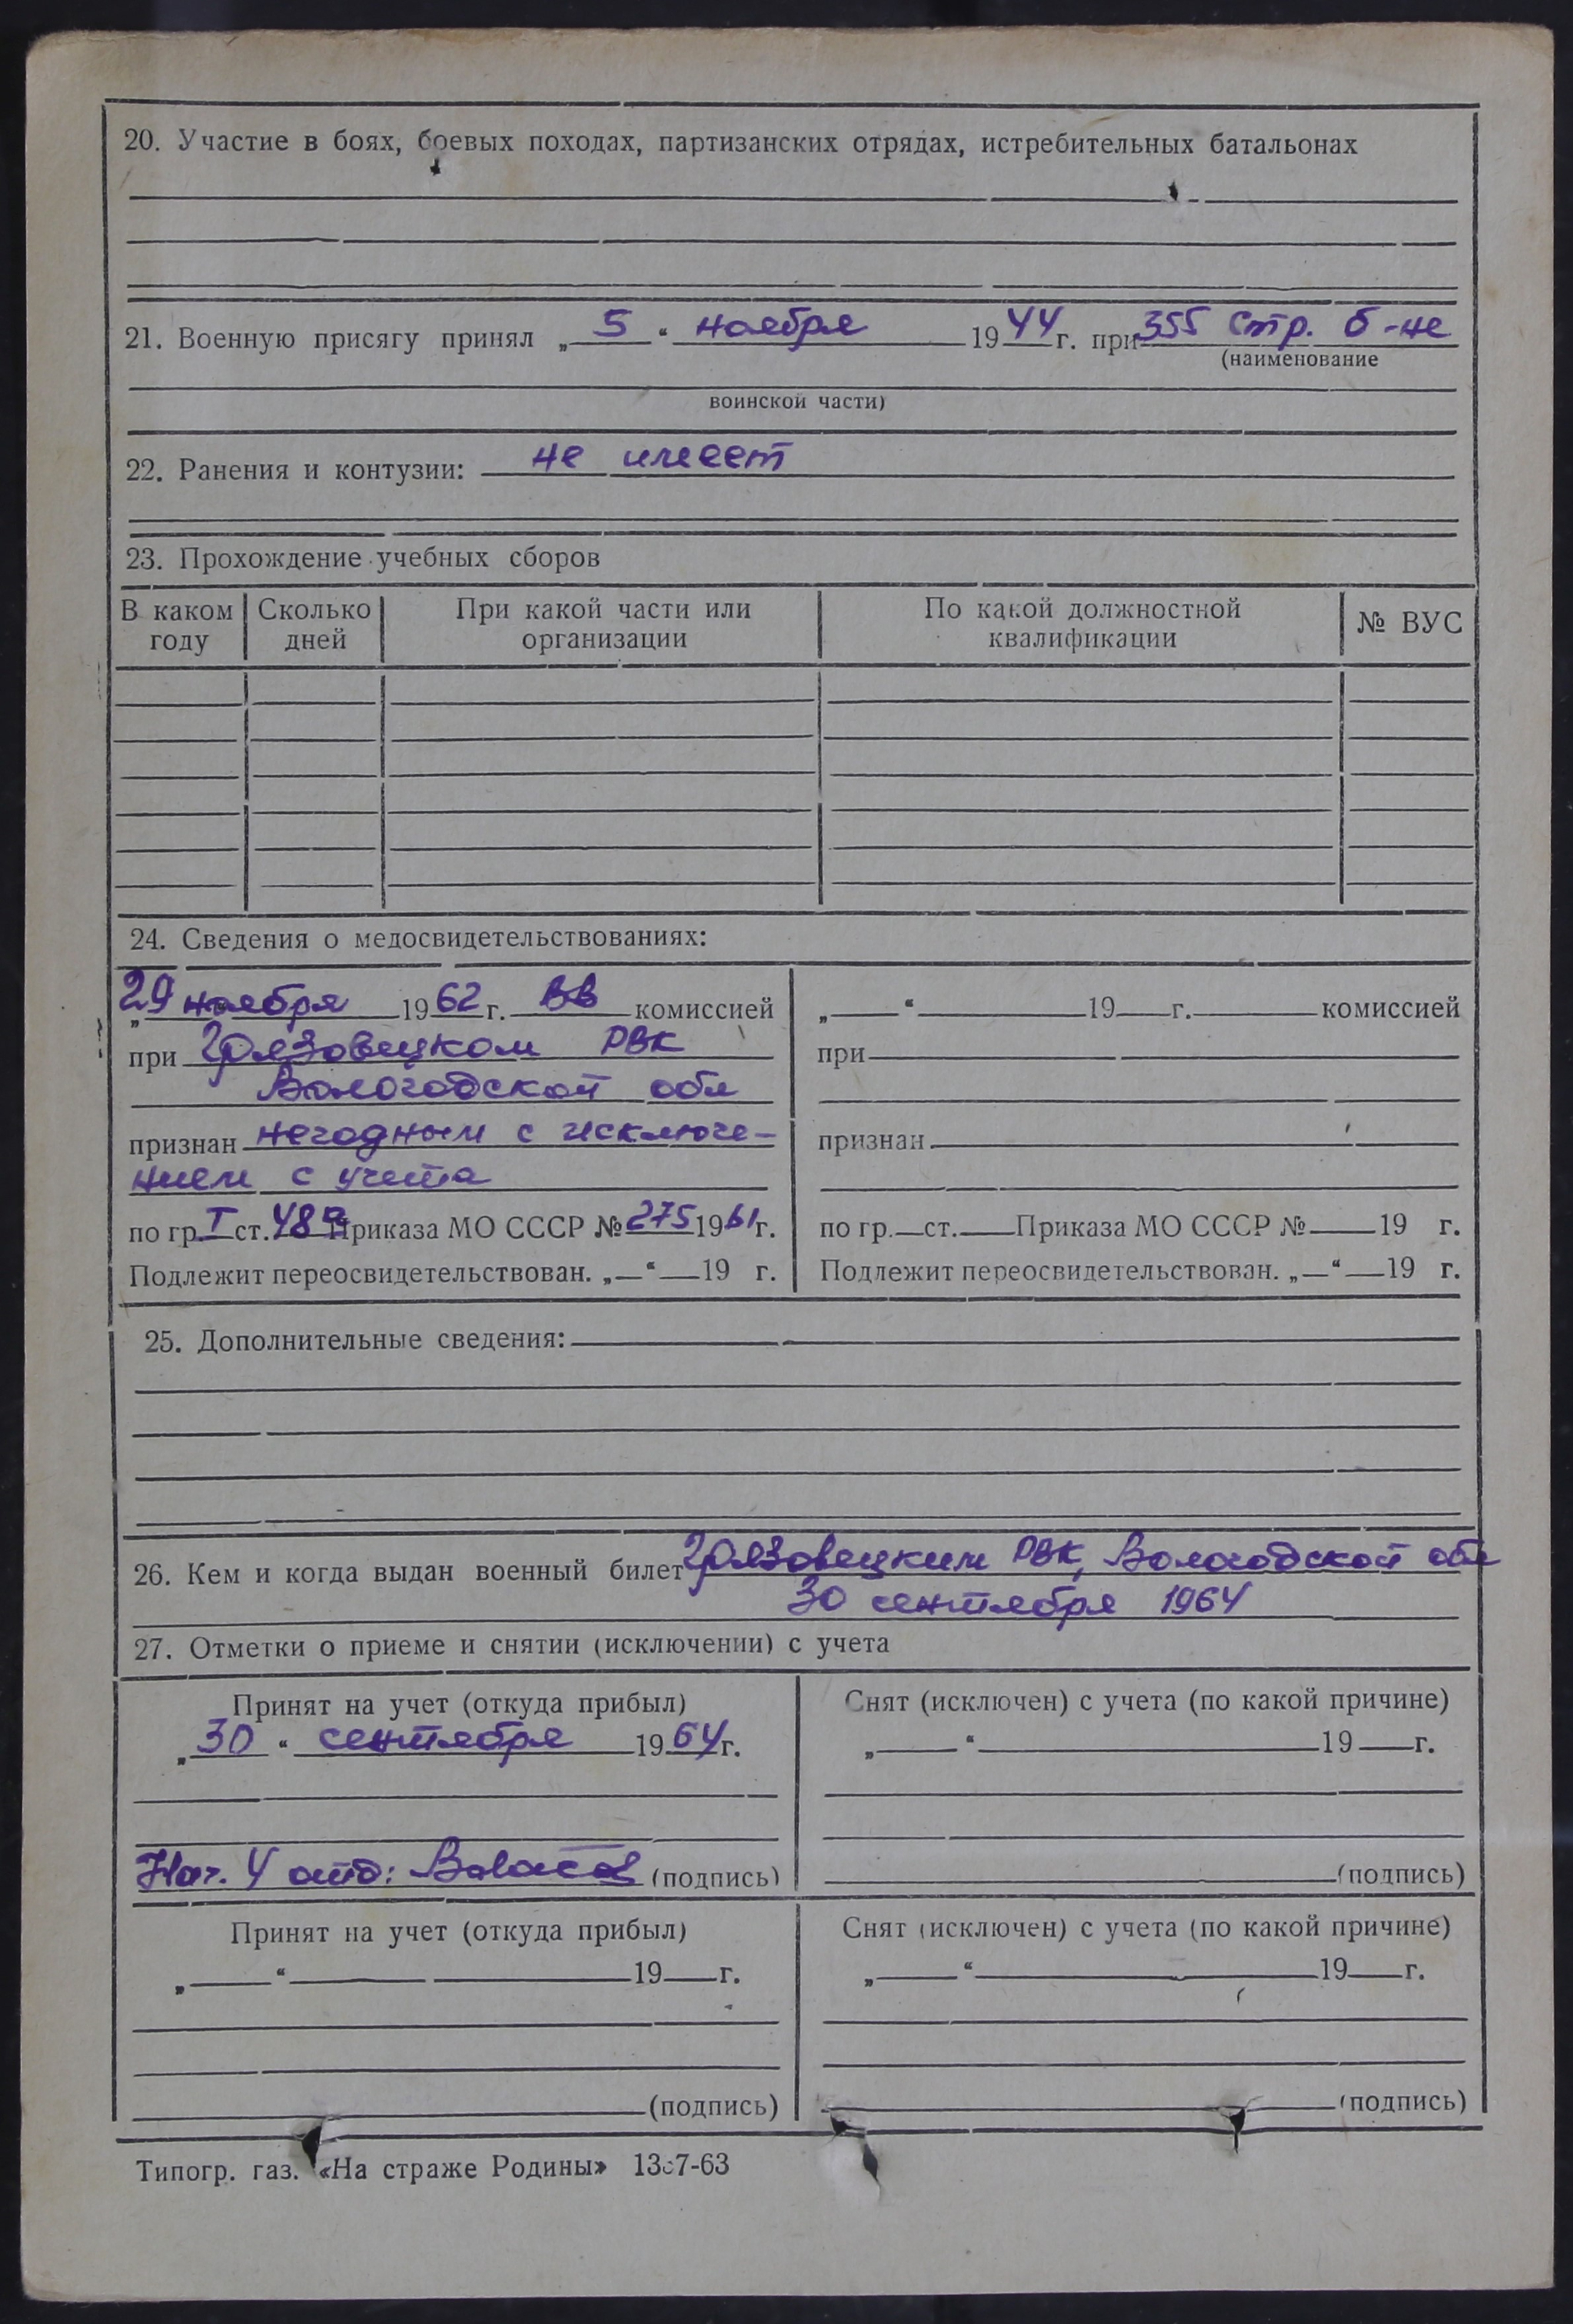 20. Участие в боях, боевых походах, партизанских отрядах, истребительных батальонах
21. Военную присягу принял „ 5 “ ноября 1944 г. при 355 стр. б-не
(наименование
воинской части)
22. Ранения и контузии: не имеет
23. Прохождение учебных сборов
В каком году | Сколько дней | При какой части или организации | По какой должностной квалификации | № ВУС
24. Сведения о медосвидетельствованиях:
„29 ноября 1962 г. ВВ комиссией
при Грязовецком РВК
Вологодской обл
признан негодным с исключе-
нием с учета
по гр. I ст. 48 Приказа МО СССР № 275 1961 г.
Подлежит переосвидетельствован. „ “ 19 г.
„ “ 19 г. комиссией
при
признан
по гр. ст. Приказа МО СССР № 19 г.
Подлежит переосвидетельствован. „ “ 19 г.
25. Дополнительные сведения:
26. Кем и когда выдан военный билет Грязовецким РВК, Вологодской обл
30 сентября 1964
27. Отметки о приеме и снятии (исключении) с учета
Принят на учет (откуда прибыл)
„ 30 “ сентября 1964 г.
Нач. 4 отд: (подпись)
Снят (исключен) с учета (по какой причине)
„ “ 19 г.
(подпись)
Принят на учет (откуда прибыл)
„ “ 19 г.
(подпись)
Снят (исключен) с учета (по какой причине)
„ “ 19 г.
(подпись)
Типогр. газ. «На страже Родины»